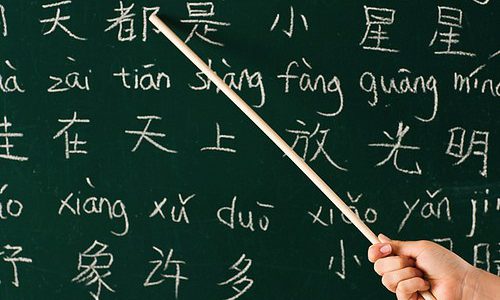 天都是小星星
zài tiān shàng fàng guāng mín
在天上放光明
xiàng xǔ duō xiǎo yǎn jīn
象许多小